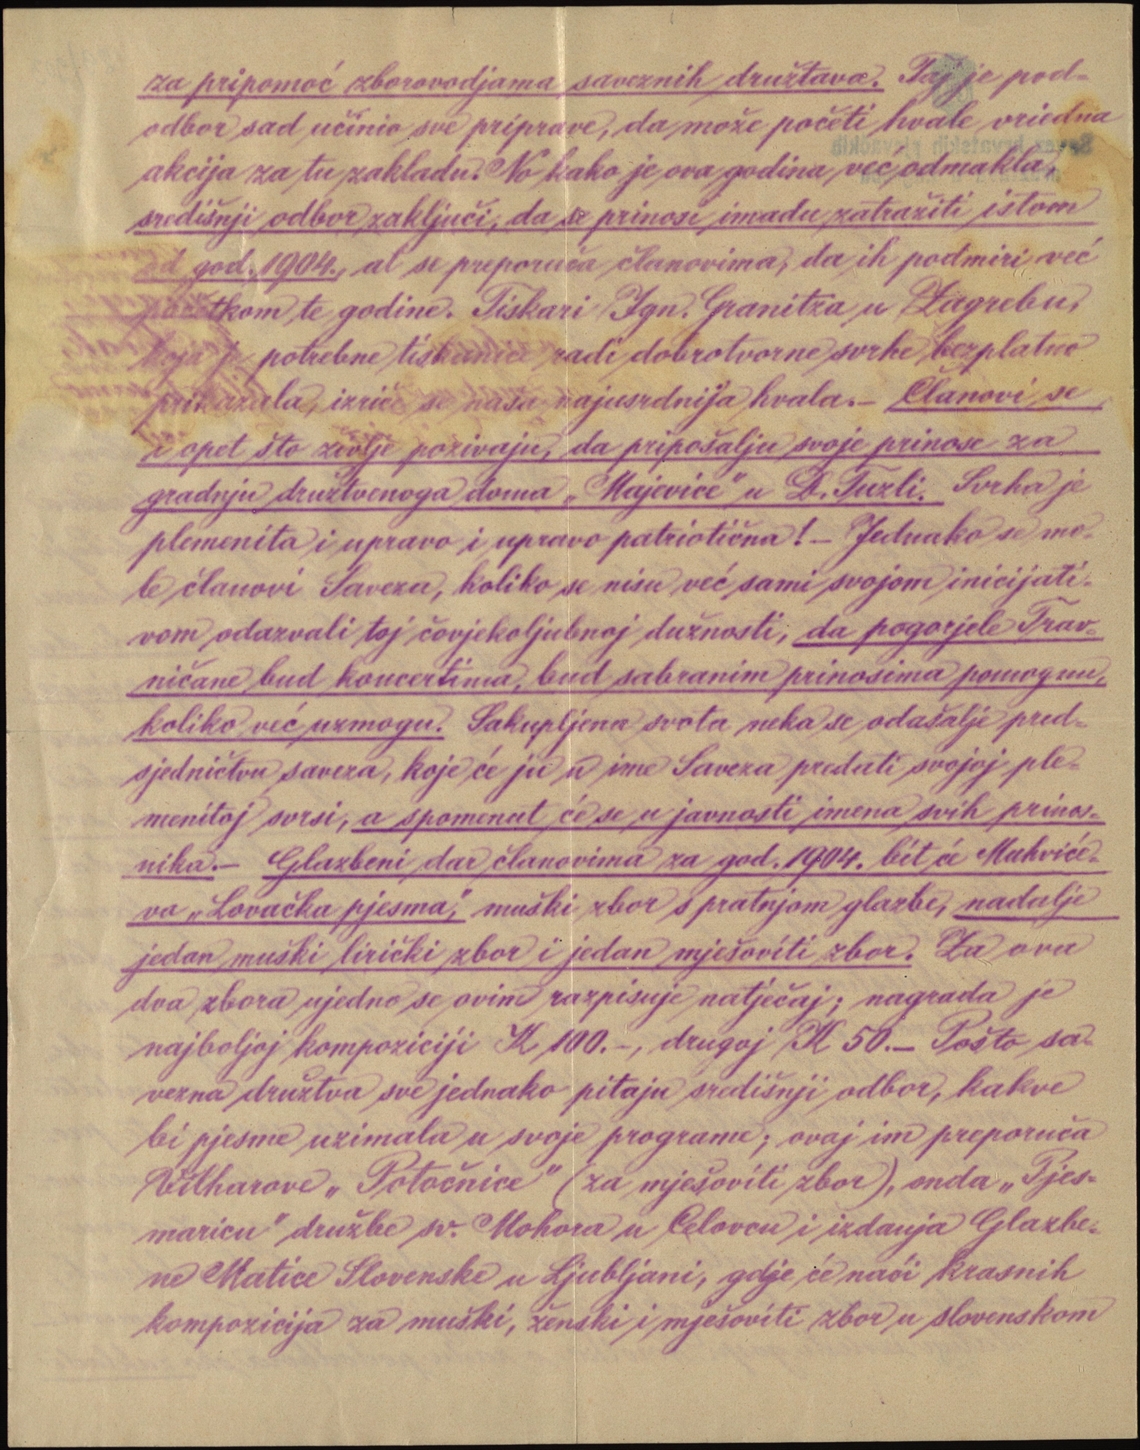 za pripomoć zborovodjama saveznih družtava. Taj je pod-
odbor sad učinio sve priprave, da može početi hvale vriedna
akcija za tu zakladu. No kako je ova godina vec odmakla,
središnji odbor zaključi, da se prinosi imadu zatražiti istom
od god. 1904., al se preporuča članovima, da ih podmiri već
početkom te godine. Tiskari Ign. Granitza u Zagrebu,
koja je potrebne tiskanice radi dobrotvorne svrhe bezplatno
prikazala, izriče se naša najusrdnija hvala. — Članovi se
i opet što življe pozivaju, da pripošalju svoje prinose za
gradnju družtvenoga doma „Majevice" u D. Tuzli. Svrha je
plemenita i upravo i upravo patriotična! — Jednako se mo-
le članovi Saveza, koliko se nisu već sami svojom inicijati-
vom odazvali toj čovjekoljubnoj dužnosti, da pogorjele Trav-
ničane bud koncertima, bud sabranim prinosima pomognu,
koliko već uzmogu. Sakupljena svota neka se odašalje pred-
sjedničtvu saveza, koje će ju u ime Saveza predati svojoj ple-
menitoj svrsi, a spomenut će se u javnosti imena svih prinos-
nika. — Glazbeni dar članovima za god. 1904. bit će Muhviće-
va „Lovačka pjesma," muški zbor s pratnjom glazbe, nadalje
jedan muški lirički zbor i jedan mješoviti zbor. Za ova
dva zbora ujedno se ovim razpisuje natječaj; nagrada je
najboljoj kompoziciji K 100.—, drugoj K 50.— Pošto sa-
vezna družtva sve jednako pitaju središnji odbor, kakve
bi pjesme uzimala u svoje programe; ovaj im preporuča
Vilharove „Potočnice" (za mješoviti zbor), onda „Pjes-
maricu" družbe sv. Mohora u Celovcu i izdanja Glazbe-
ne Matice Slovenske u Ljubljani, gdje će naći krasnih
kompozicija za muški, ženski i mješoviti zbor u slovenskom